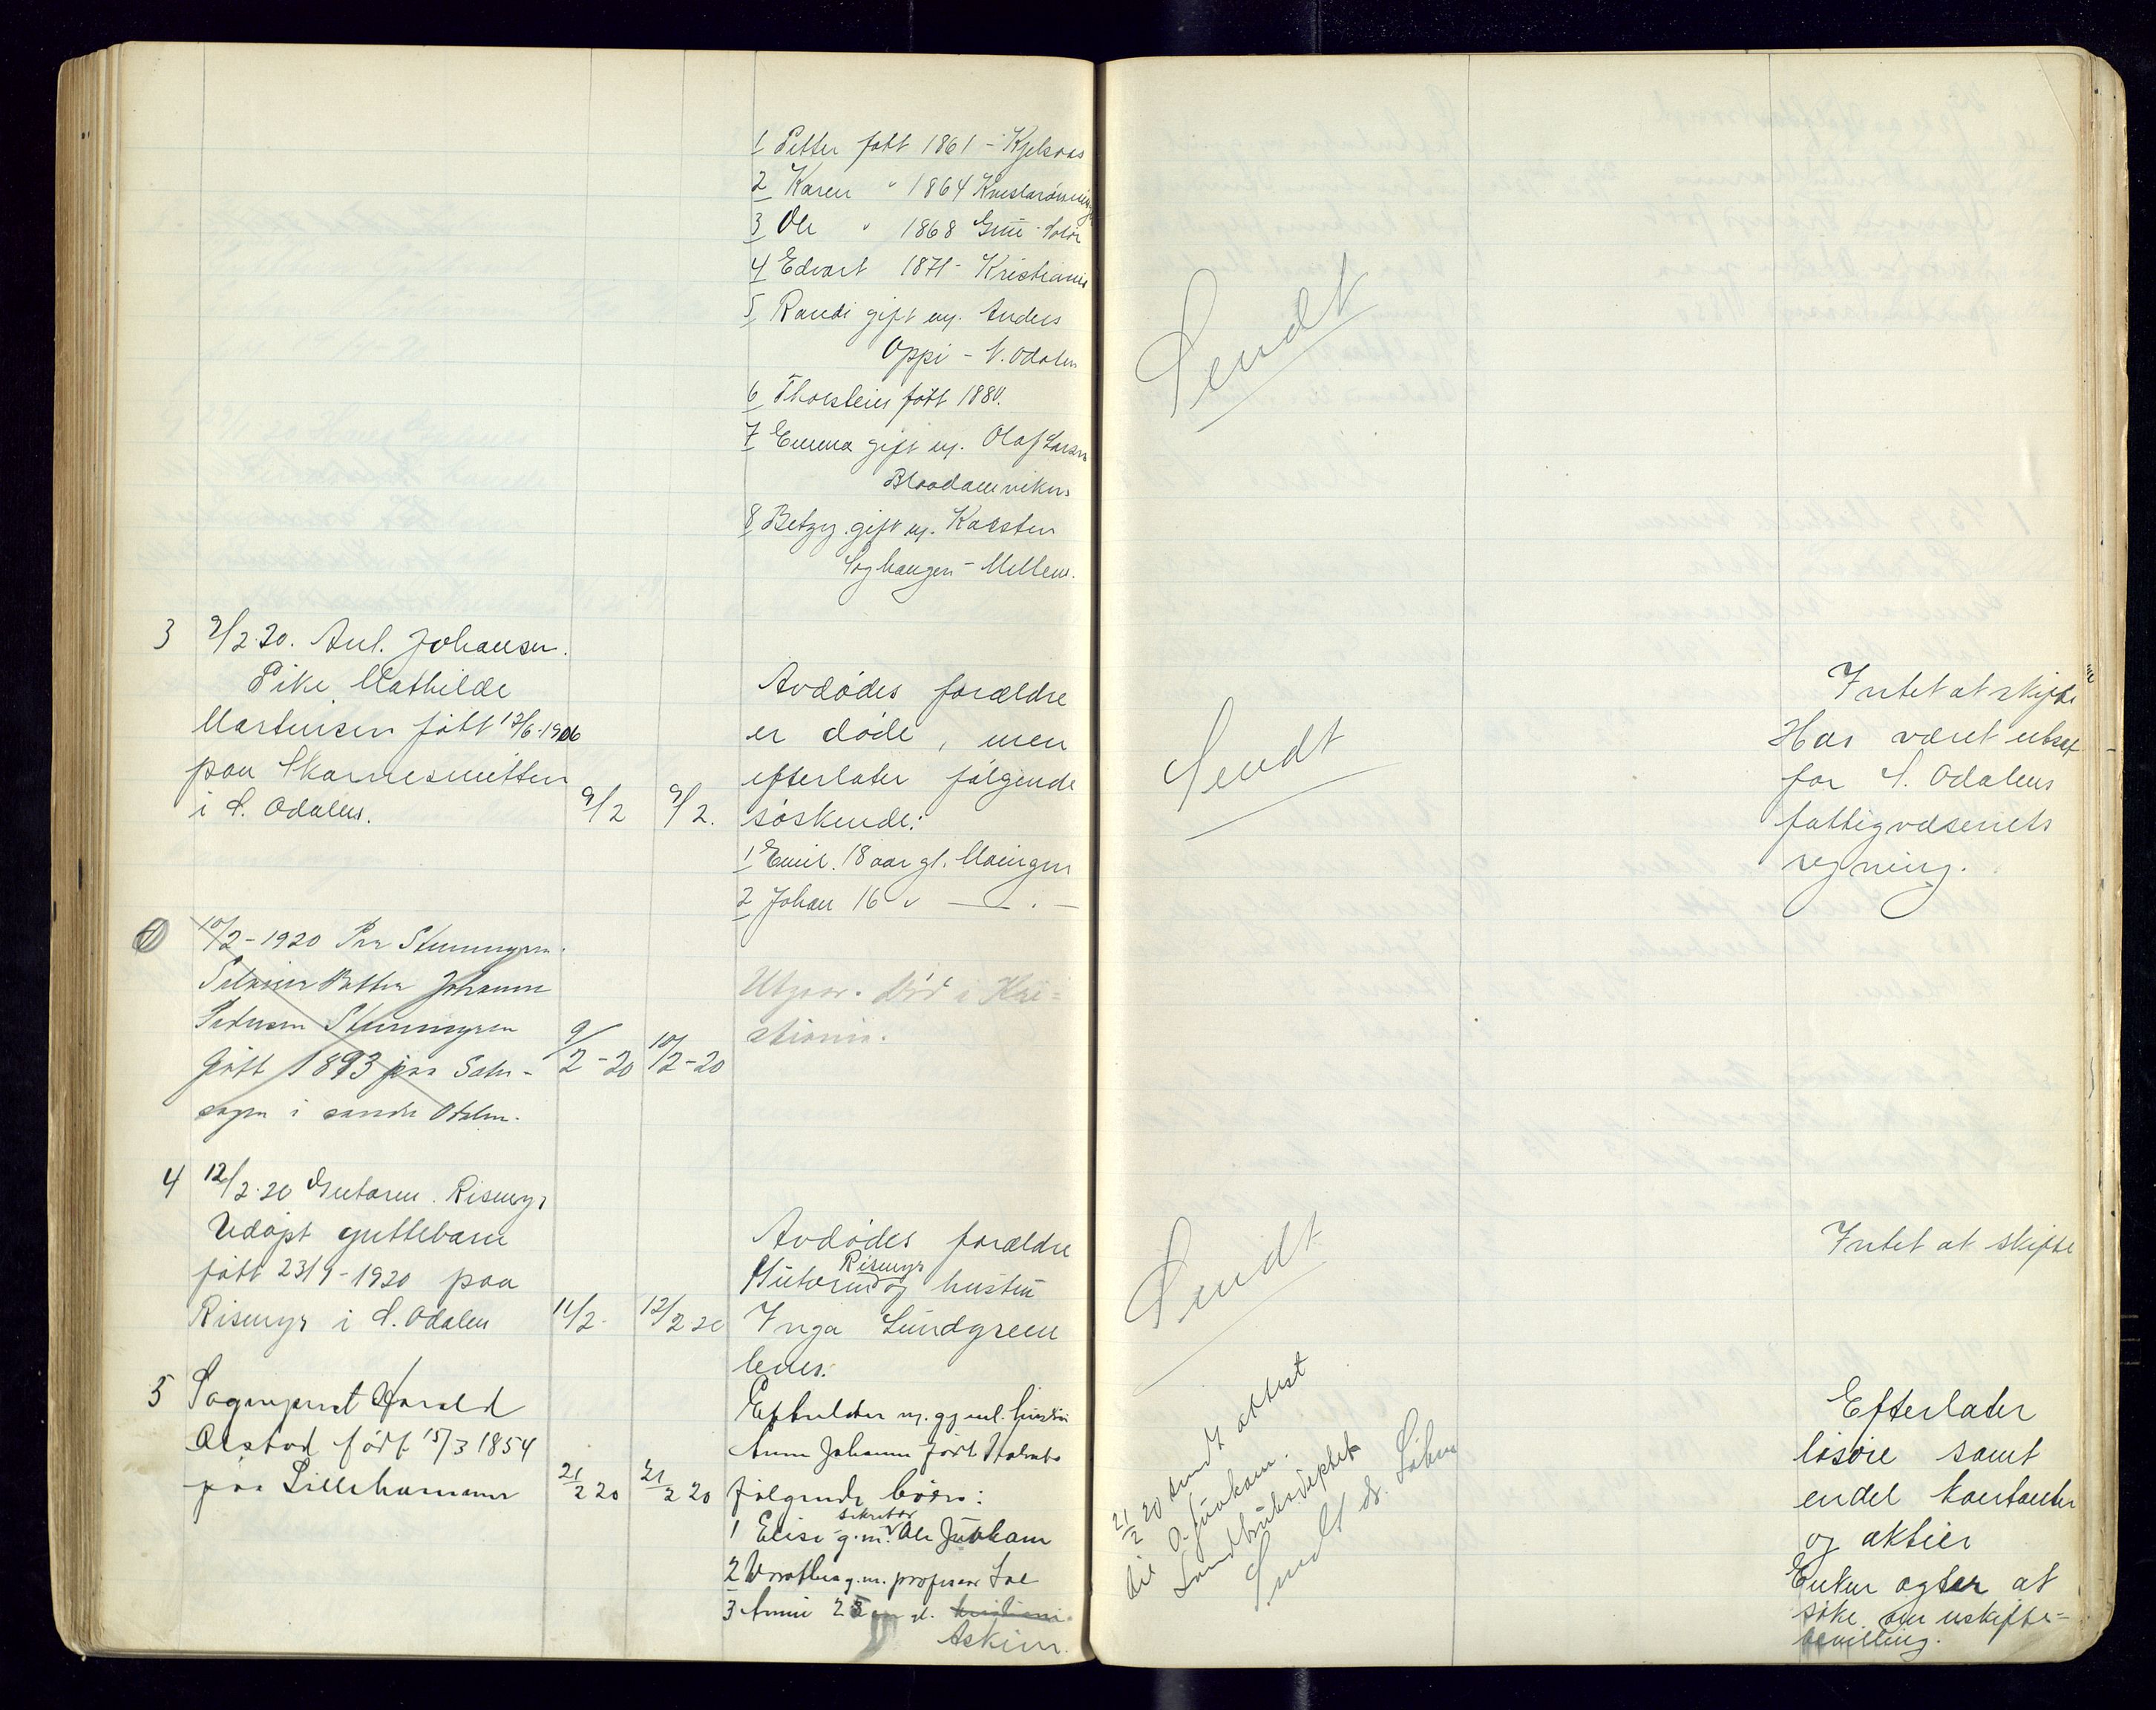 1 Petter født 1861 - Kjelsaas
2 Karen " 1864
3 Ole " 1868 Grue Solør
4 Edvart 1871 - Kristiania
5 Randi gift m. Anders
Oppi - N. Odalen
6 Thorstein født 1880.
7 Emma gift m. Olaf Larsen
8 Betzy gift m. Karsten
Soghaugen - Mellem.
3 9/2 20. Anl. Johansen.
Pike Mathilde
Martinsen født 17/6-1906
paa Skarnesmitten
i S. Odalen.
9/2
9/2.
Avdødes forældre
er døde, men
efterlater følgende
søskende:
1 Emil. 18 aar gl.
2 Johan 16 " — " —
Sendt
Sendt
Intet at skifte
Har været utsat
for S. Odalens
fattigvæsenets
regning.
4 10/2-1920 Per Stummyren.
Johanne
Pedersen Stummyren
født 1893 paa
sogn i søndre Odalen.
9/2-20
10/2-20
Utgaar. Død i Kri-
stiania.
4 12/2-20 Guttorm Rismyr
Udøpt guttebarn
født 23/1-1920 paa
Rismyr i S. Odalen
11/2-
12/2 20
Avdødes forældre
Guttorm Rismyr og hustru
Inga Lundgreen
lever.
Sendt
Intet at skifte
5 Sogneprest Harald
Alstad født 15/3 1854
paa Lillehammer
21/2 20
21/2 20
Efterlater m. gjenl. hustru
Anna Johanne født
følgende børn:
1 Elise g.m. sekretær Ole Juvkam
2 Dorothea g.m. professor
3 Anna 25 aar gl. Kristiania
Askim.
21/2 20 sendt attest
til O. Juvkam.
Landbruksdeptet
Sendt
Efterlater
løsøre samt
endel kontanter
og aktier
Enken agter at
søke om uskifte-
bevilling.